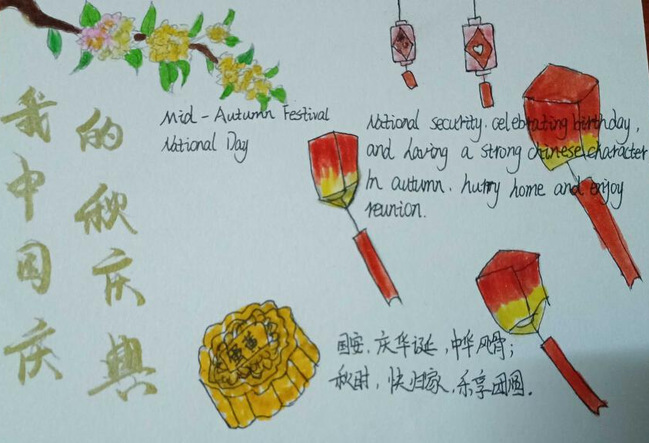 我的
中秋
国庆
庆典
Mid-Autumn Festival
National Day
National security. celebrating birthday,
and having a strong chinese character
In autumn. hurry home and enjoy
reunion.
国安,庆华诞,中华风骨;
秋时,快归家,乐享团圆.